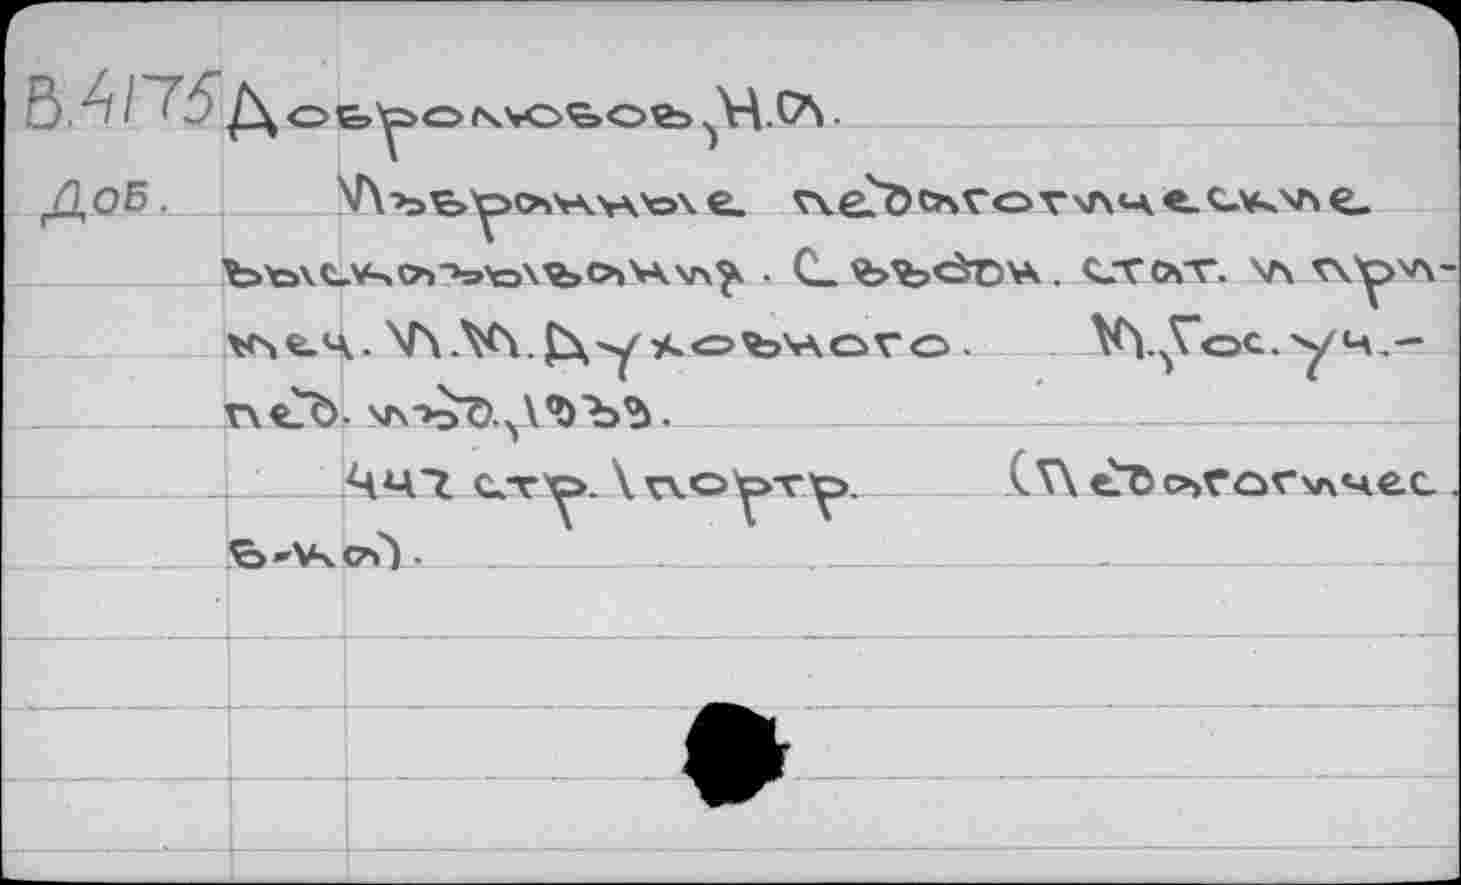 В.4175 Добролюбов, Н.А.
Доб. Избранные педагогические
высказывания. С введен. стат. и при-
меч. И.И. Духовного. М., Гос. уч.-
пед. изд., 1939.
447 стр. 1 портр. (Педагогичес.
б-ка).